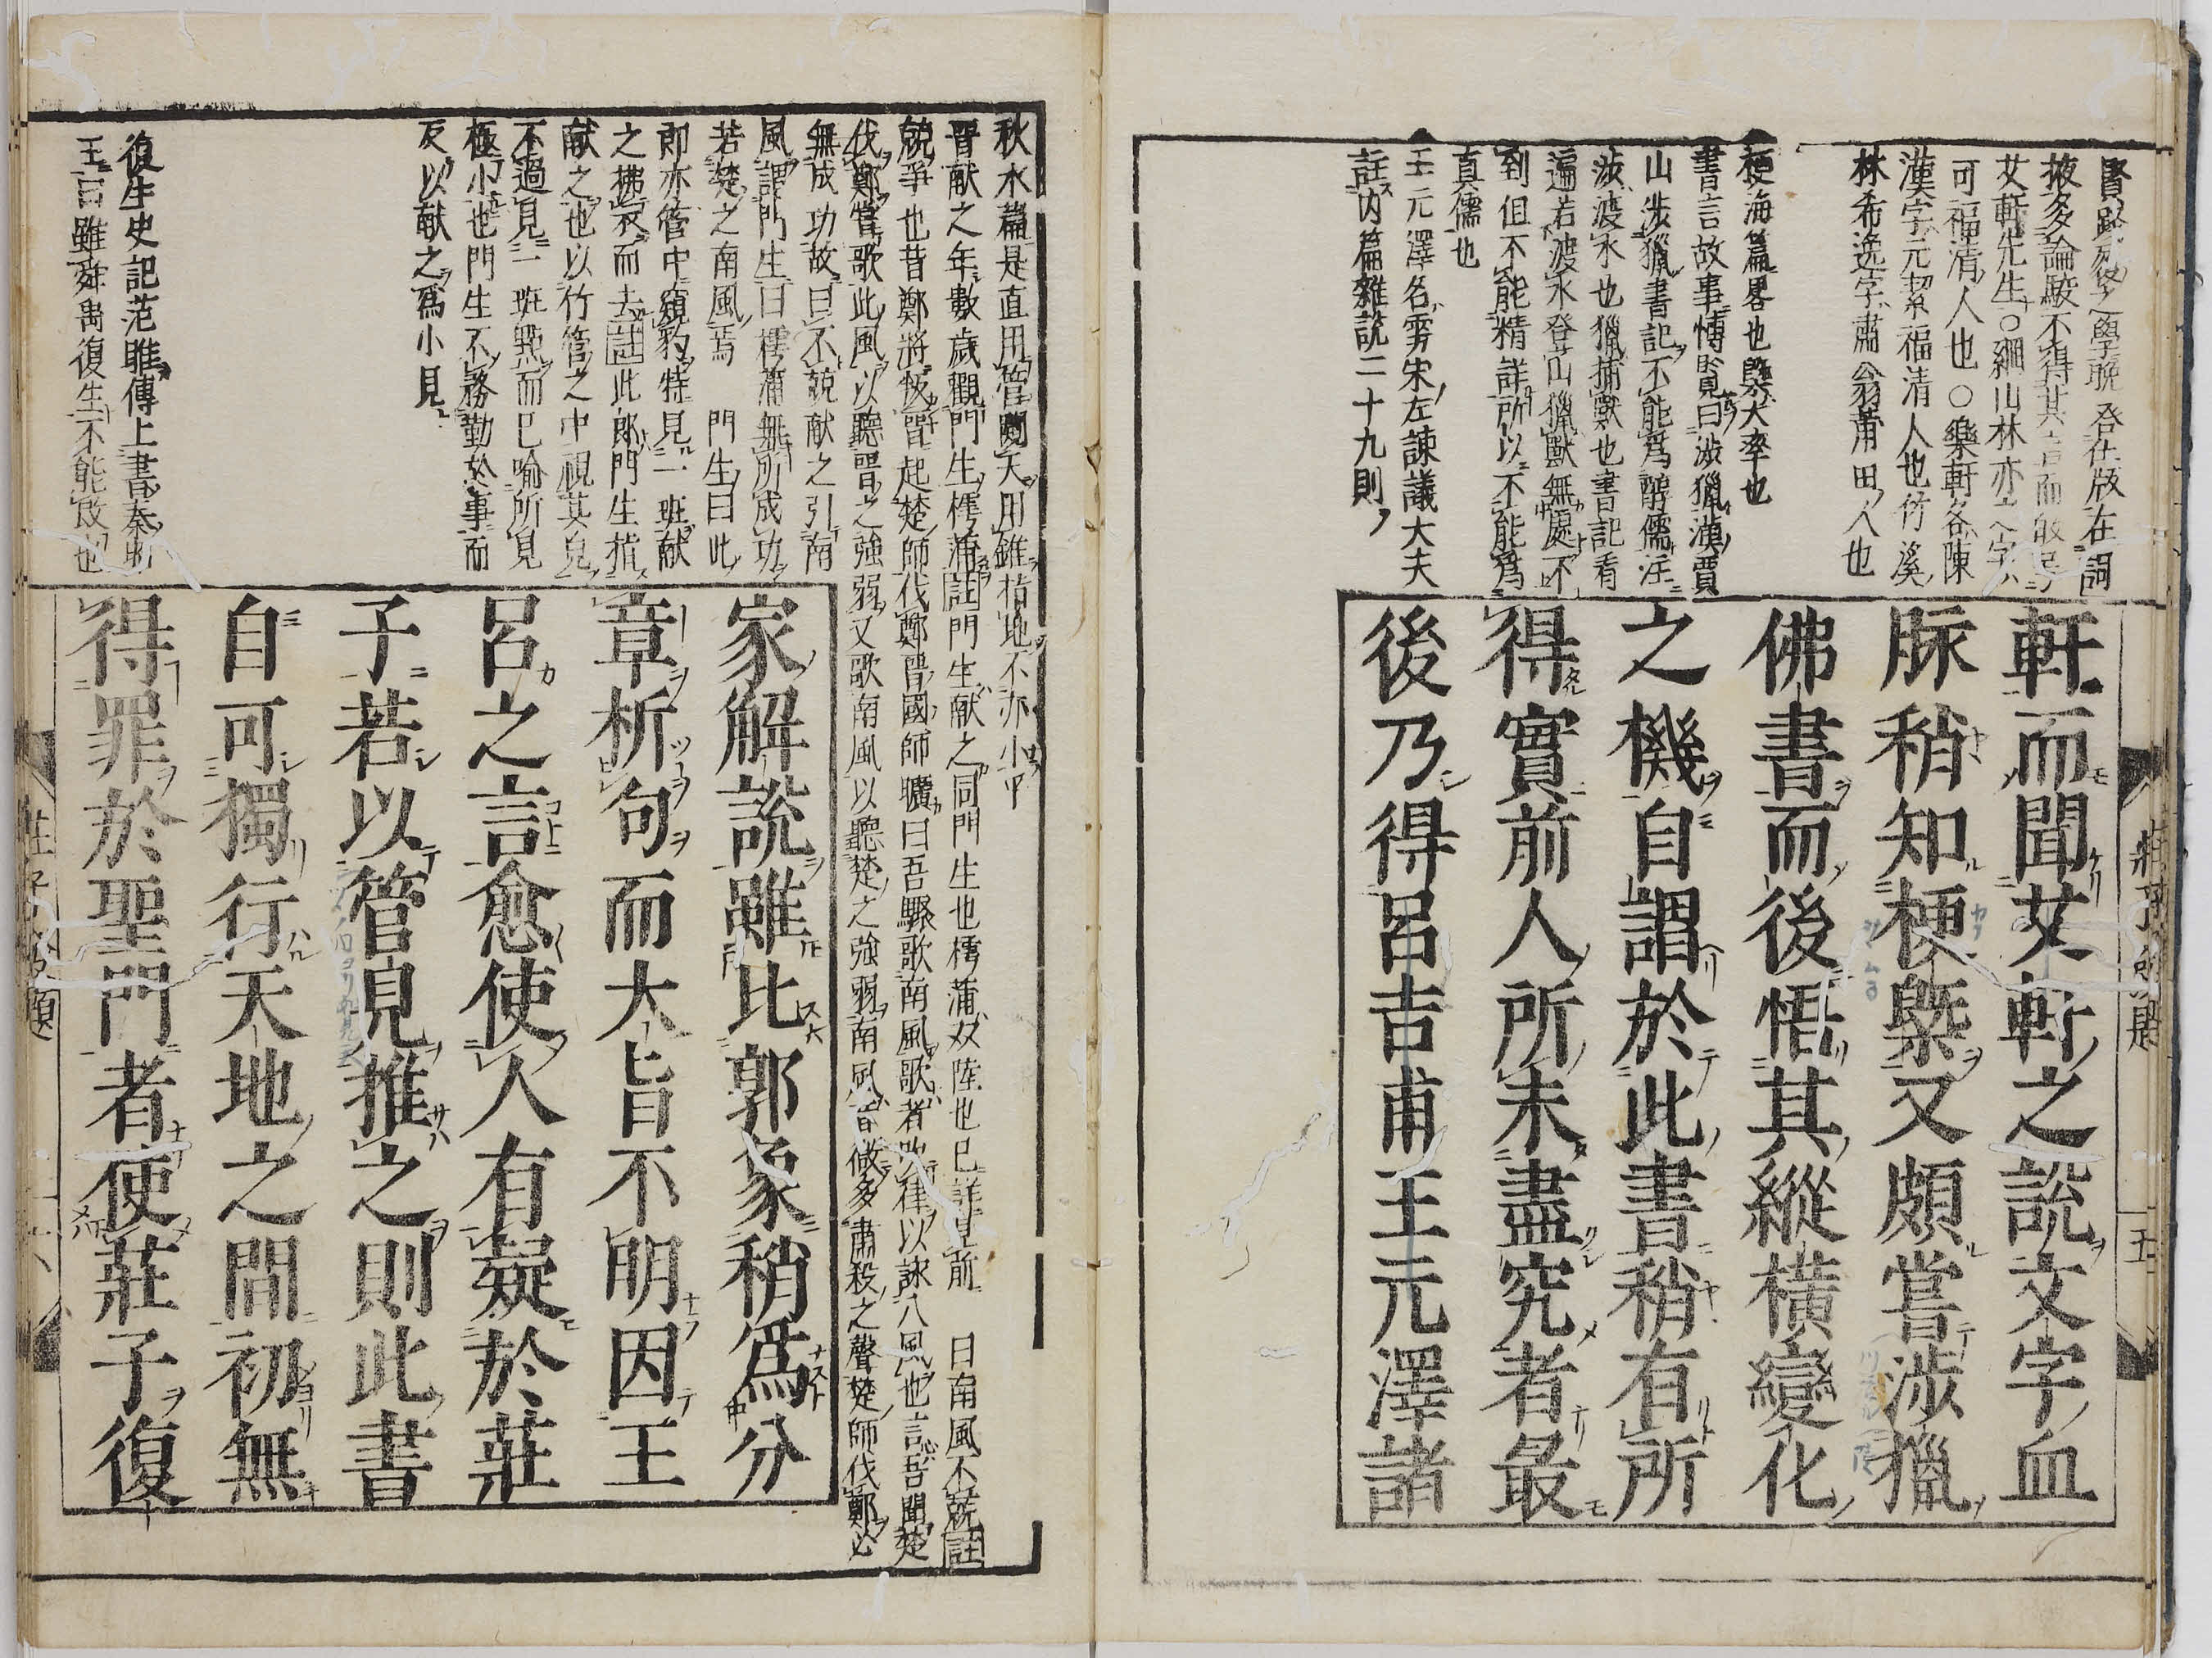 賢路 學晩 在版在詞
掖多論駁不得其言而
艾軒先生○綱山林亦之字
可福清人也○樂軒名陳
漢字元絜福清人也竹溪
林希逸字肅翁莆田人也
梗海篇畧也槩大率也
書言故事博覧曰渉獵漢賈
山渉獵書記不能爲醇儒注
渉渡水也獵捕獸也書記看
遍若渡水登山獵獸無處不
到但不能精詳所以不能爲
真儒也
王元澤名雱宋左諫議大夫
註内篇雜説二十九則
軒而聞艾軒之説文字血
脉稍知梗槩又頗嘗渉獵
佛書而後悟其縱橫變化
之機自謂於此書稍有所
得實前人所未盡究者最
後乃得呂吉甫王元澤諸
五
秋水篇是直用管闚天用錐指地不亦小乎
晋献之年數歳觀門生樗蒲註門生献之同門生也樗蒲双陸也已詳見前 曰南風不競註
競爭也昔鄭將叛晋起楚師伐鄭晋國師曠曰吾驟歌南風歌者吹律以詠八風也言吾聞楚
伐鄭嘗歌此風以聽晋之強弱又歌南風以聽楚之強弱南風音微多肅殺之聲楚師伐鄭必
無成功故曰不競献之引南
風謂門生曰樗蒲無所成功
若楚之南風焉 門生曰此
郎亦管中窺豹特見一班献
之拂衣而去註此郎門生指
献之也以竹管之中視其皃
不過見一班㸃而已喩所見
極小也門生不務勤於事而
反以献之爲小見
復生史記范雎傳上書秦昭
王曰雖舜禹復生不能改也
家解説雖比郭象稍爲分
章析句而大旨不明因王
呂之言愈使人有疑於莊
子若以管見推之則此書
自可獨行天地之間初無
得罪於聖門者使莊子復